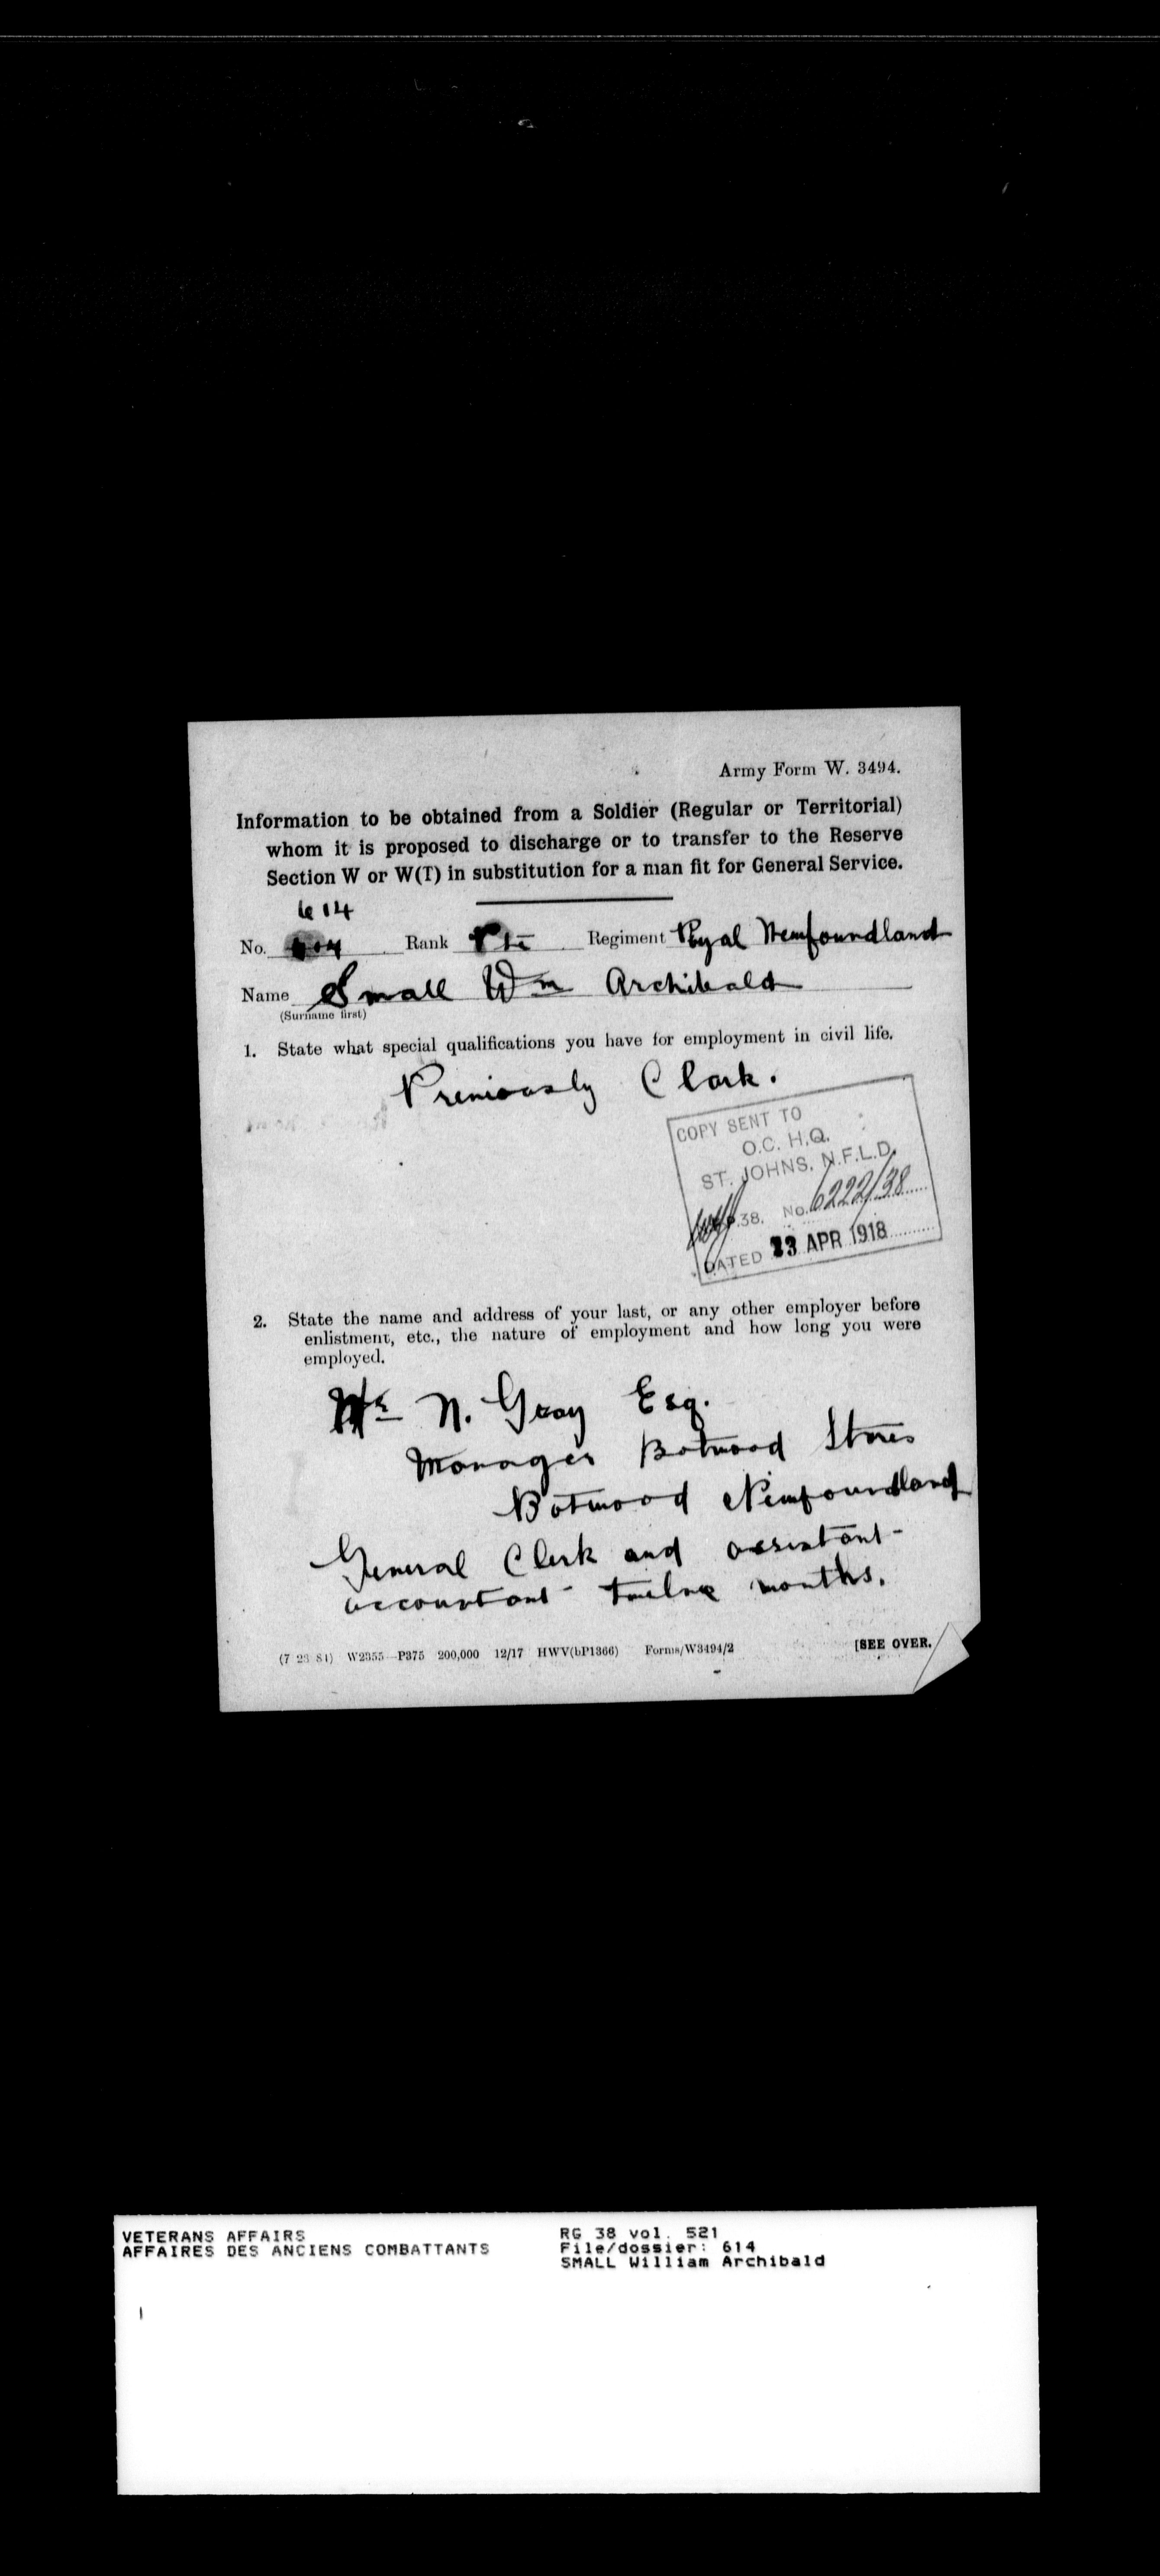 Army Form W. 3494.
Information to be obtained from a Soldier (Regular or Territorial)
whom it is proposed to discharge or to transfer to the Reserve
Section W or W(T) in substitution for a man fit for General Service.
614
No. Rank Pte Regiment Royal Newfoundland
Name Small Wm Archibald
(Surname first)
1. State what special qualifications you have for employment in civil life.
Previously Clark.
COPY SENT TO
O.C. H.Q.
ST. JOHNS. N.F.L.D.
P.38. No. 6222/38
DATED 23 APR 1918
2. State the name and address of your last, or any other employer before
enlistment, etc., the nature of employment and how long you were
employed.
N. Gray Esq.
Manager Botwood Stores
Botwood Newfoundland
General Clerk and assistant
accountant twelve months.
(7 23 81) W2355—P375 200,000 12/17 HWV(bP1366) Forms/W3494/2
[SEE OVER.
VETERANS AFFAIRS
AFFAIRES DES ANCIENS COMBATTANTS
RG 38 vol. 521
File/dossier: 614
SMALL William Archibald